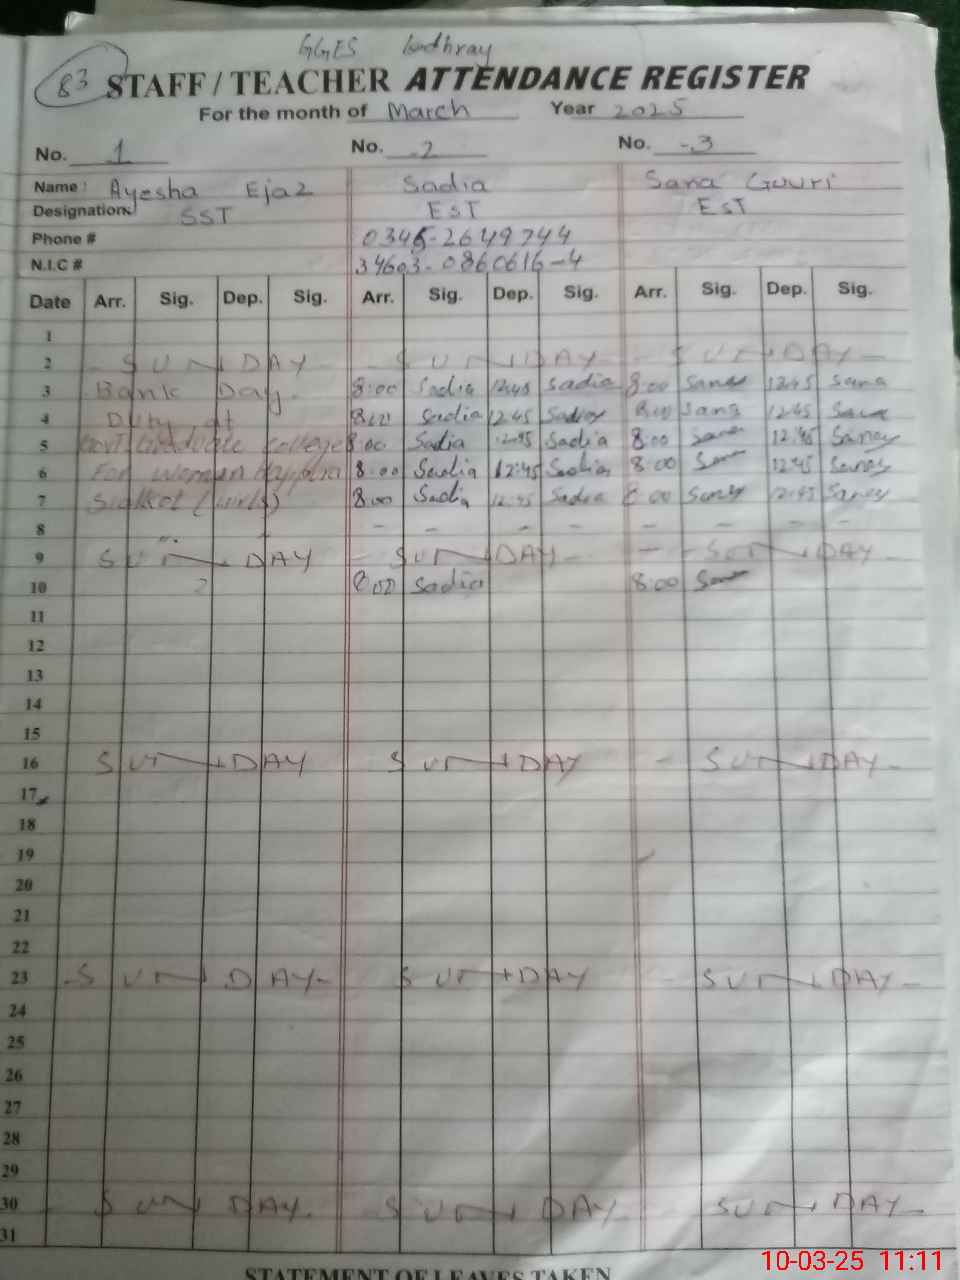 GGES
83 STAFF / TEACHER ATTENDANCE REGISTER
For the month of March Year 2025
No. 1 No. 2 No. 3
Name: Ayesha Ejaz Sadia Sana
Designation SST EST EST
Phone # 0346-2649744
N.I.C # 34603-0860616-4
Date Arr. Sig. Dep. Sig. Arr. Sig. Dep. Sig. Arr. Sig. Dep. Sig.
1
2 SUNDAY SUNDAY SUNDAY
3 Bank Day. 8:00 Sadia 12:45 Sadia 8:00 Sana 12:45 Sana
4 Duty at 8:00 Sadia 12:45 Sadia 8:00 Sana 12:45 Sana
5 Govt Graduate College 8:00 Sadia 12:45 Sadia 8:00 Sana 12:45 Sana
6 For Woman 8:00 Sadia 12:45 Sadia 8:00 Sana 12:45 Sana
7 Sialkot (Girls) 8:00 Sadia 12:45 Sadia 8:00 Sana 12:45 Sana
8 - - - - - - - -
9 SUNDAY SUNDAY SUNDAY
10 8:00 Sadia 8:00 Sana
11
12
13
14
15
16 SUNDAY SUNDAY SUNDAY
17
18
19
20
21
22
23 SUNDAY SUNDAY SUNDAY
24
25
26
27
28
29
30 SUNDAY SUNDAY SUNDAY
31
STATEMENT OF LEAVES TAKEN
10-03-25 11:11